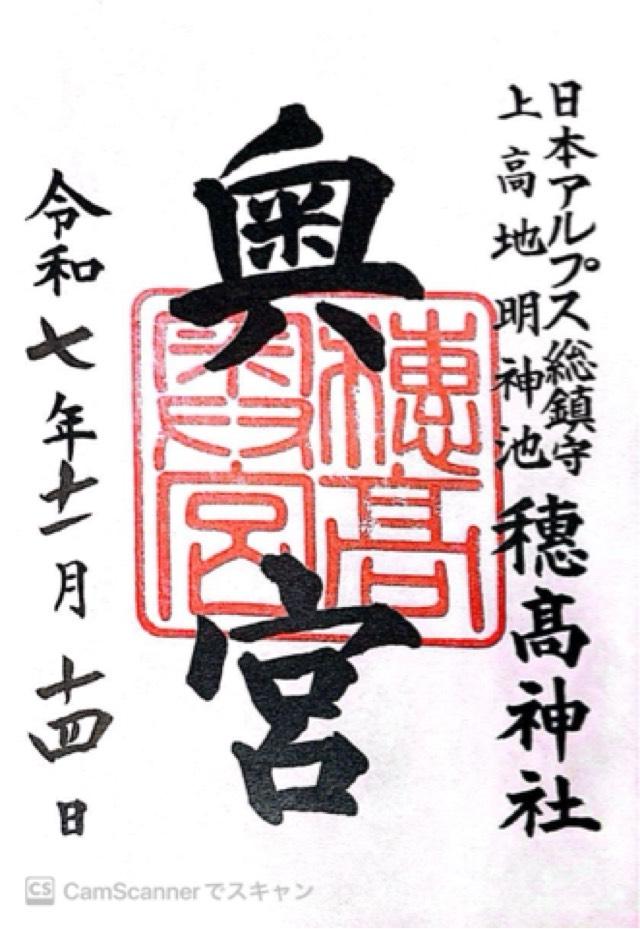 日本アルプス総鎮守
上高地明神池
穗髙神社
奥宮
穗髙奥宮
令和七年十一月十四日
CS CamScannerでスキャン